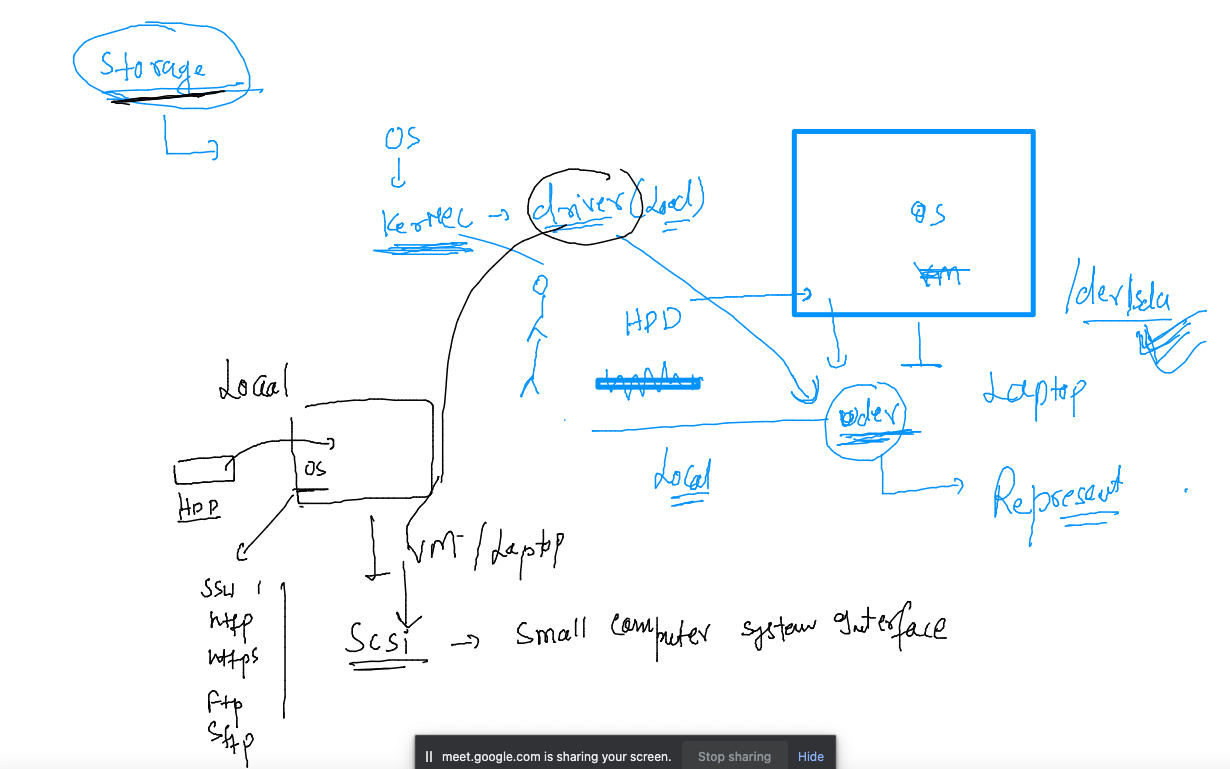 Storage
OS
Kernel → driver (Load)
OS
HDD
/dev/sda
Laptop
Local
Represent
Local
OS
HDD
VM / Laptop
SSH
http
https
ftp
sftp
Scsi → Small computer system Interface
meet.google.com is sharing your screen.
Stop sharing
Hide